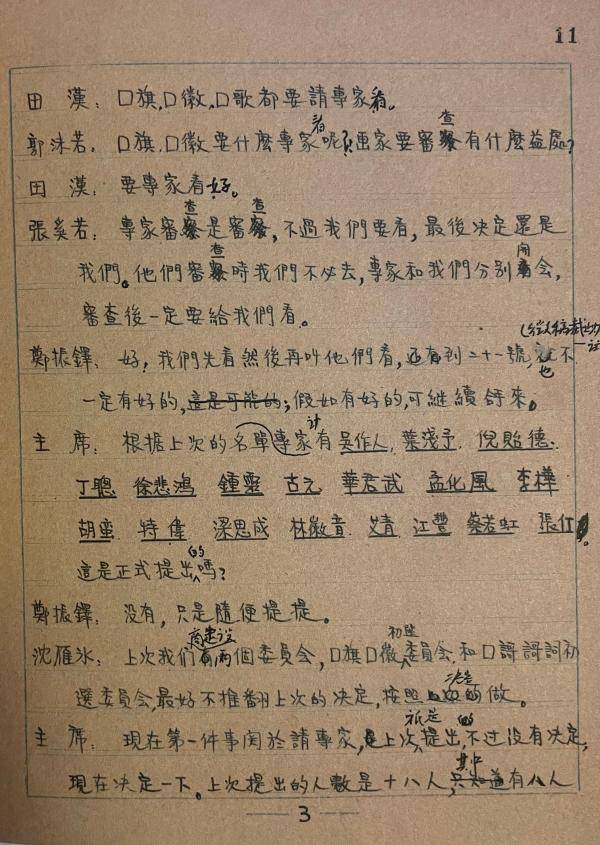 11
田　漢：口旗，口徽，口歌都要請專家看。
郭沫若：口旗.口徽要什麼專家呢？畫家要審查有什麼益處？
田　漢：要專家看好。
張奚若：專家審查是審查，不過我們要看，最後決定還是
我們。他們審查時我們不必去，專家和我們分別開會，
審查後一定要給我們看。
鄭振鐸：好！我們先看然後再叫他們看，還有到二十一號，也不
一定有好的，這是可能的；假如有好的，可繼續辦來。
主　席：根据上次的名單專家有吴作人，葉淺予．倪貽德．
丁聰 徐悲鴻 鍾靈 古元 華君武 孟化風 李樺
胡蛮．特偉 梁思成 林徽音．艾青 江豐 蔡若虹 張仃。
這是正式提出的嗎？
鄭振鐸：没有，只是隨便提提。
沈雁冰：上次我们商定設兩個委員会，口旗口徽初選委員会.和口謌謌詞初
選委員会，最好不推翻上次的决定，按照决定做。
主　席：現在第一件事関於請專家，上次祇是提出的，不过没有决定，
現在决定一下。上次提出的人數是十八人，其中有八人
3